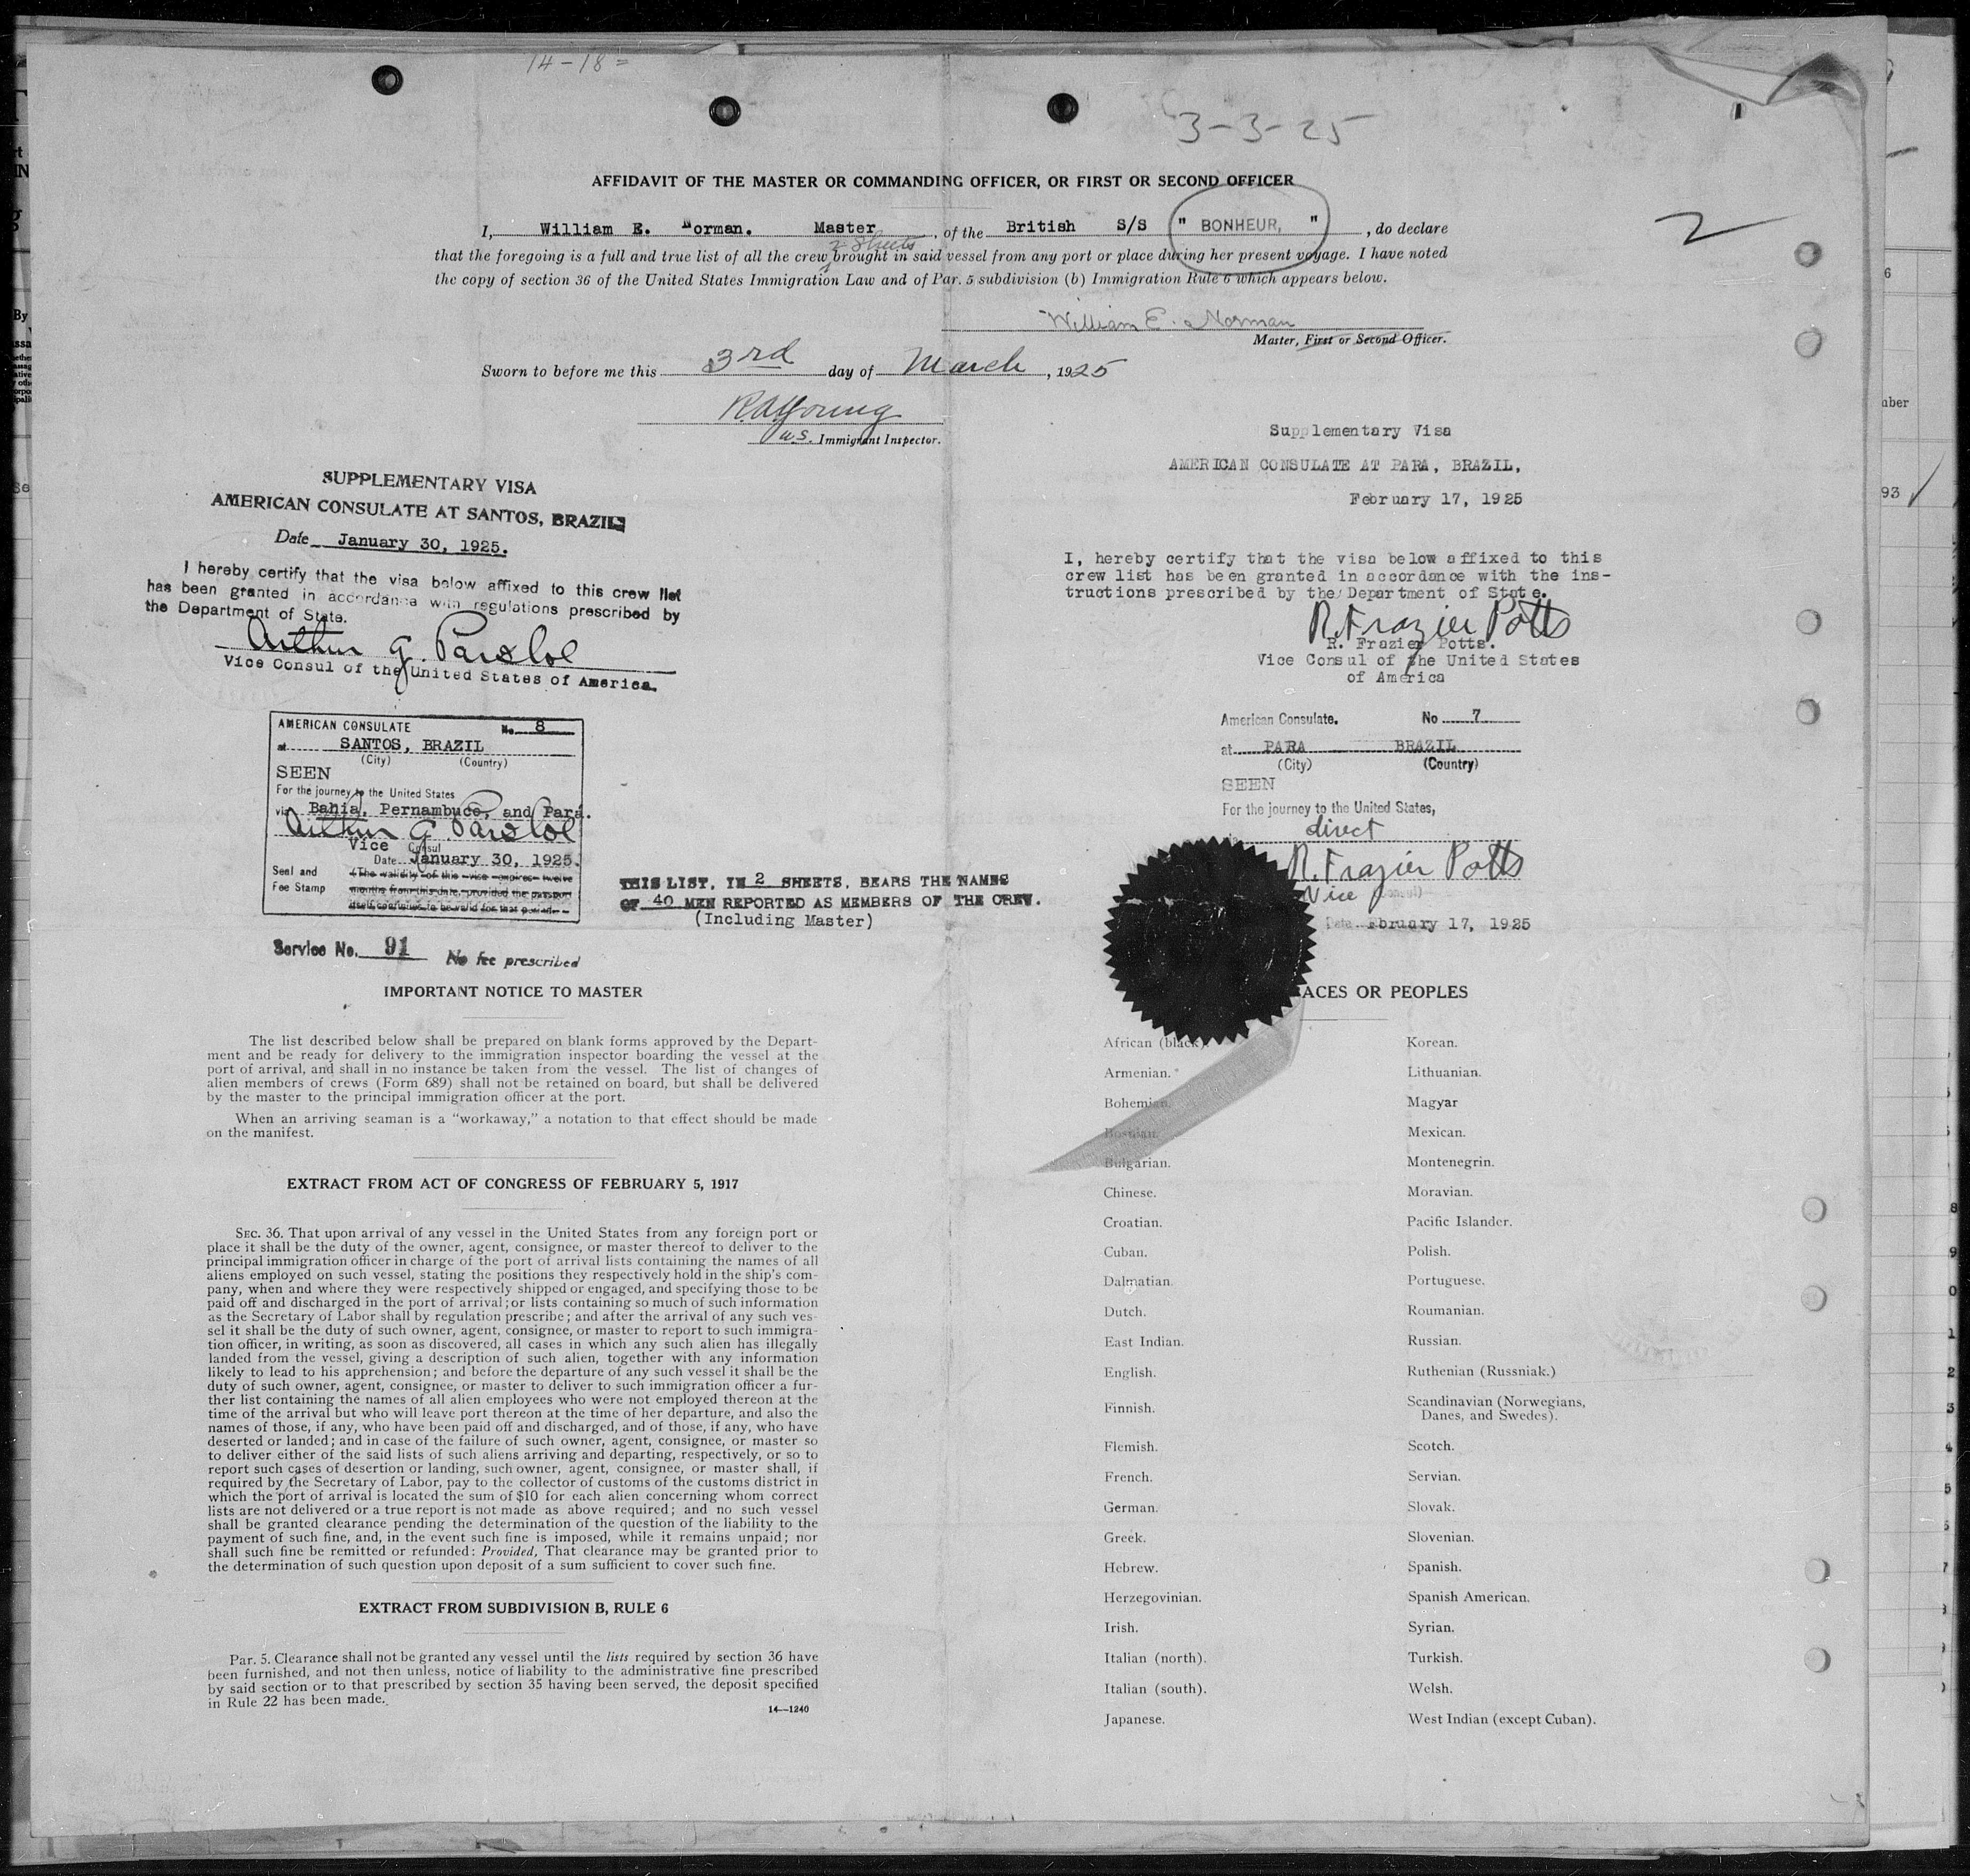 14-18=
3-3-25
AFFIDAVIT OF THE MASTER OR COMMANDING OFFICER, OR FIRST OR SECOND OFFICER
I, William E. Norman. Master, of the British S/S " BONHEUR, ", do declare
2 sheets
that the foregoing is a full and true list of all the crew brought in said vessel from any port or place during her present voyage. I have noted
the copy of section 36 of the United States Immigration Law and of Par. 5 subdivision (b) Immigration Rule 6 which appears below.
2
William E. Norman
Master, First or Second Officer.
Sworn to before me this 3rd day of March, 1925
R.A. Young
U.S. Immigrant Inspector.
SUPPLEMENTARY VISA
AMERICAN CONSULATE AT SANTOS, BRAZIL
Date January 30, 1925.
I hereby certify that the visa below affixed to this crew list
has been granted in accordance with regulations prescribed by
the Department of State.
Vice Consul of the United States of America.
AMERICAN CONSULATE No. 8
at SANTOS, BRAZIL
(City) (Country)
SEEN
For the journey to the United States
via Bahia, Pernambuco, and Para.
Vice Consul
Date January 30, 1925.
Seal and
Fee Stamp
(The validity of this visa expires twelve
months from this date, provided the passport
itself continues to be valid for that period.
Service No. 91 No fee prescribed
THIS LIST, IN 2 SHEETS, BEARS THE NAMES
OF 40 MEN REPORTED AS MEMBERS OF THE CREW.
(Including Master)
Supplementary Visa
AMERICAN CONSULATE AT PARA, BRAZIL,
February 17, 1925
I, hereby certify that the visa below affixed to this
crew list has been granted in accordance with the ins-
tructions prescribed by the Department of State.
R. Frazier Potts
R. Frazier Potts.
Vice Consul of the United States
of America
American Consulate. No 7
at PARA BRAZIL
(City) (Country)
SEEN
For the journey to the United States,
direct
R. Frazier Potts
Vice Consul)
Date February 17, 1925
IMPORTANT NOTICE TO MASTER
The list described below shall be prepared on blank forms approved by the Depart-
ment and be ready for delivery to the immigration inspector boarding the vessel at the
port of arrival, and shall in no instance be taken from the vessel. The list of changes of
alien members of crews (Form 689) shall not be retained on board, but shall be delivered
by the master to the principal immigration officer at the port.
When an arriving seaman is a "workaway," a notation to that effect should be made
on the manifest.
EXTRACT FROM ACT OF CONGRESS OF FEBRUARY 5, 1917
SEC. 36. That upon arrival of any vessel in the United States from any foreign port or
place it shall be the duty of the owner, agent, consignee, or master thereof to deliver to the
principal immigration officer in charge of the port of arrival lists containing the names of all
aliens employed on such vessel, stating the positions they respectively hold in the ship's com-
pany, when and where they were respectively shipped or engaged, and specifying those to be
paid off and discharged in the port of arrival; or lists containing so much of such information
as the Secretary of Labor shall by regulation prescribe; and after the arrival of any such ves-
sel it shall be the duty of such owner, agent, consignee, or master to report to such immigra-
tion officer, in writing, as soon as discovered, all cases in which any such alien has illegally
landed from the vessel, giving a description of such alien, together with any information
likely to lead to his apprehension; and before the departure of any such vessel it shall be the
duty of such owner, agent, consignee, or master to deliver to such immigration officer a fur-
ther list containing the names of all alien employees who were not employed thereon at the
time of the arrival but who will leave port thereon at the time of her departure, and also the
names of those, if any, who have been paid off and discharged, and of those, if any, who have
deserted or landed; and in case of the failure of such owner, agent, consignee, or master so
to deliver either of the said lists of such aliens arriving and departing, respectively, or so to
report such cases of desertion or landing, such owner, agent, consignee, or master shall, if
required by the Secretary of Labor, pay to the collector of customs of the customs district in
which the port of arrival is located the sum of $10 for each alien concerning whom correct
lists are not delivered or a true report is not made as above required; and no such vessel
shall be granted clearance pending the determination of the question of the liability to the
payment of such fine, and, in the event such fine is imposed, while it remains unpaid; nor
shall such fine be remitted or refunded: Provided, That clearance may be granted prior to
the determination of such question upon deposit of a sum sufficient to cover such fine.
EXTRACT FROM SUBDIVISION B, RULE 6
Par. 5. Clearance shall not be granted any vessel until the lists required by section 36 have
been furnished, and not then unless, notice of liability to the administrative fine prescribed
by said section or to that prescribed by section 35 having been served, the deposit specified
in Rule 22 has been made.
14—1240
RACES OR PEOPLES
African (black).
Armenian.
Bohemian.
Bosnian.
Bulgarian.
Chinese.
Croatian.
Cuban.
Dalmatian.
Dutch.
East Indian.
English.
Finnish.
Flemish.
French.
German.
Greek.
Hebrew.
Herzegovinian.
Irish.
Italian (north).
Italian (south).
Japanese.
Korean.
Lithuanian.
Magyar
Mexican.
Montenegrin.
Moravian.
Pacific Islander.
Polish.
Portuguese.
Roumanian.
Russian.
Ruthenian (Russniak.)
Scandinavian (Norwegians,
Danes, and Swedes).
Scotch.
Servian.
Slovak.
Slovenian.
Spanish.
Spanish American.
Syrian.
Turkish.
Welsh.
West Indian (except Cuban).